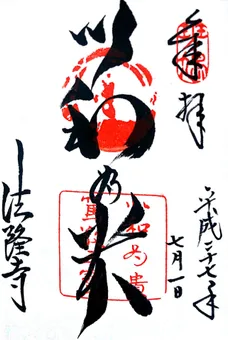 奉拝
平成二十七年
七月一日
以和為貴
以和為貴
法隆寺